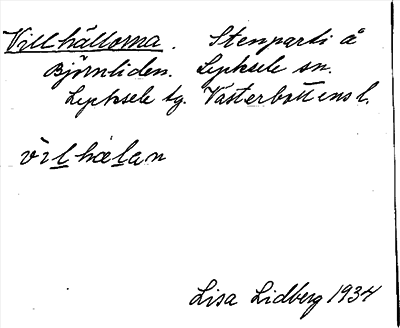 Villhällorna. Stenparti å
Björnliden. Lycksele sn.
Lycksele tg. Västerbottens l.
vìlhælan
Lisa Lidberg 1934